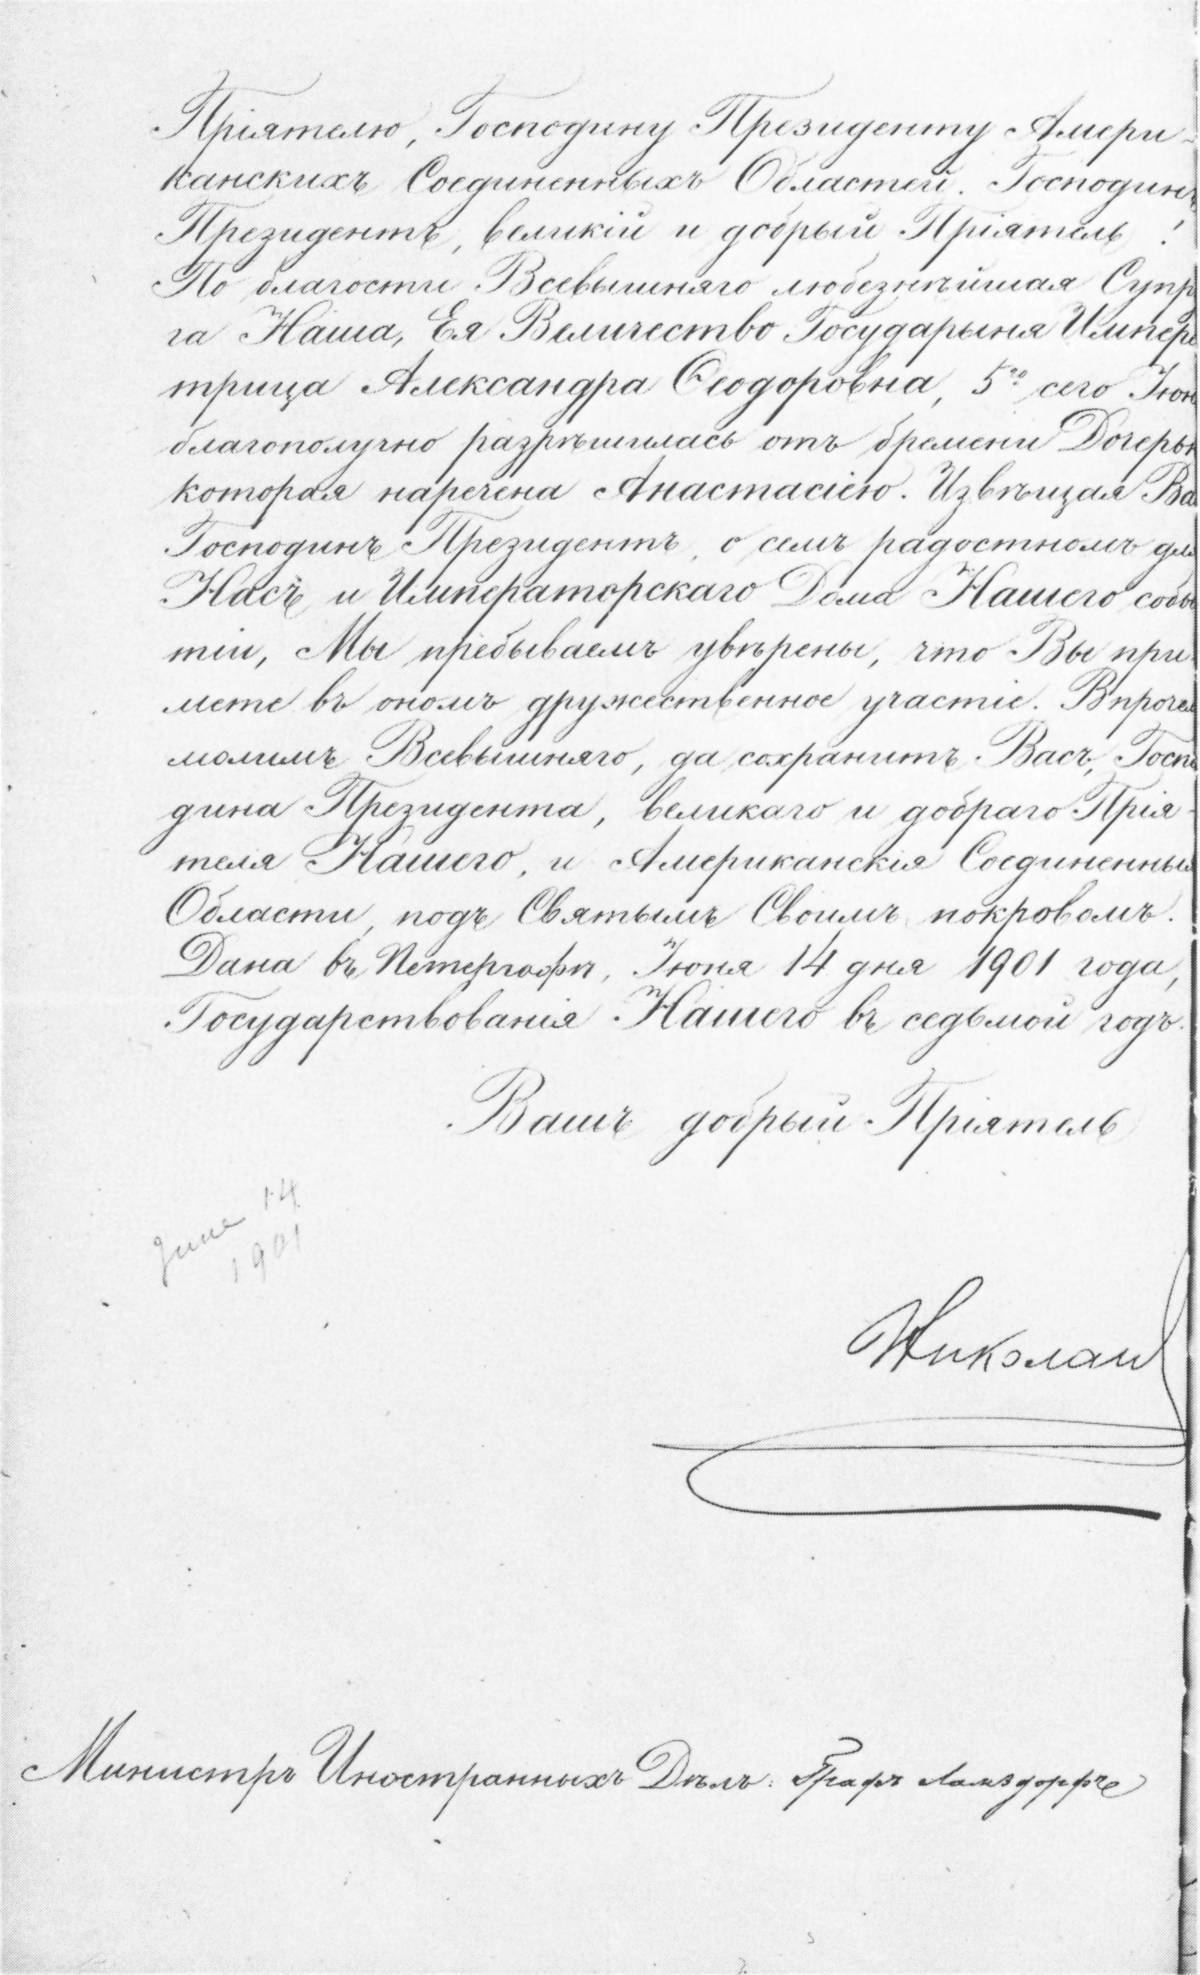 Пріятелю, Господину Президенту Амери-
канскихъ Соединенныхъ Областей. Господинъ
Президентъ, великій и добрый Пріятель!
По благости Всевышняго любезнѣйшая Супр
га Наша, Ея Величество Государыня Импера
трица Александра Ѳеодоровна, 5го сего Іюн
благополучно разрѣшилась отъ бремени Дочерью
которая наречена Анастасіею. Извѣщая Ва
Господинъ Президентъ, о семъ радостномъ для
Насъ и Императорскаго Дома Нашего собы
тіи, Мы пребываемъ увѣрены, что Вы при
мете въ ономъ дружественное участіе. Впрочем
молимъ Всевышняго, да сохранитъ Васъ, Госпо
дина Президента, великаго и добраго Прія-
теля Нашего, и Американскія Соединенныя
Области, подъ Святымъ Своимъ покровомъ.
Дана въ Петергофѣ, Іюня 14 дня 1901 года,
Государствованія Нашего въ седьмой годъ.
Вашъ добрый Пріятель
June 14
1901
Николай
Министръ Иностранныхъ Дѣлъ: Графъ Ламздорфъ